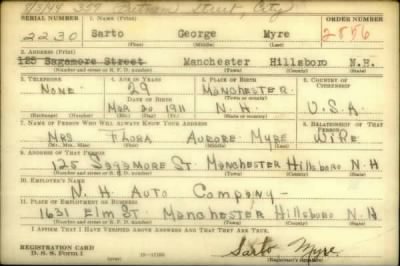 9/3/49 359 Putnam Street, City
SERIAL NUMBER 1. Name (Print) ORDER NUMBER
2230 Sarto George Myre 2856
(First) (Middle) (Last)
2. Address (Print)
125 Sagamore Street Manchester Hillsboro N.H.
(Number and street or R. F. D. number) (Town) (County) (State)
3. Telephone 4. Age in Years 5. Place of Birth 6. Country of Citizenship
None 29 Manchester
Date of Birth (Town or county)
Mar 20 1911 N.H. U.S.A
(Exchange) (Number) (Mo.) (Day) (Yr.) (State or country)
7. Name of Person Who Will Always Know Your Address 8. Relationship of That Person
Mrs Flora Aurore Myre Wife
(Mr., Mrs., Miss) (First) (Middle) (Last)
9. Address of That Person
125 Sagamore St. Manchester Hillsboro N.H
(Number and street or R. F. D. number) (Town) (County) (State)
10. Employer's Name
N.H. Auto Company -
11. Place of Employment or Business
1631 Elm St. Manchester Hillsboro N.H
(Number and street or R. F. D. number) (Town) (County) (State)
I Affirm That I Have Verified Above Answers and That They Are True.
REGISTRATION CARD
D. S. S. Form 1 (over) Sarto Myre.
(Registrant's signature)